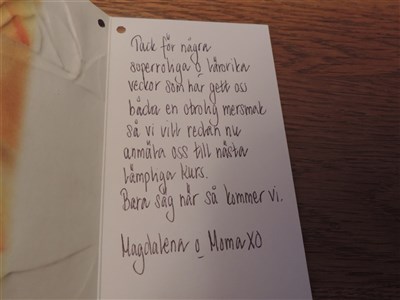 Tack för några
superroliga o lärorika
veckor som har gett oss
båda en otrolig mersmak
så vi vill redan nu
anmäla oss till nästa
lämpliga kurs.
Bara säg när så kommer vi.
Magdalena o Moma XO